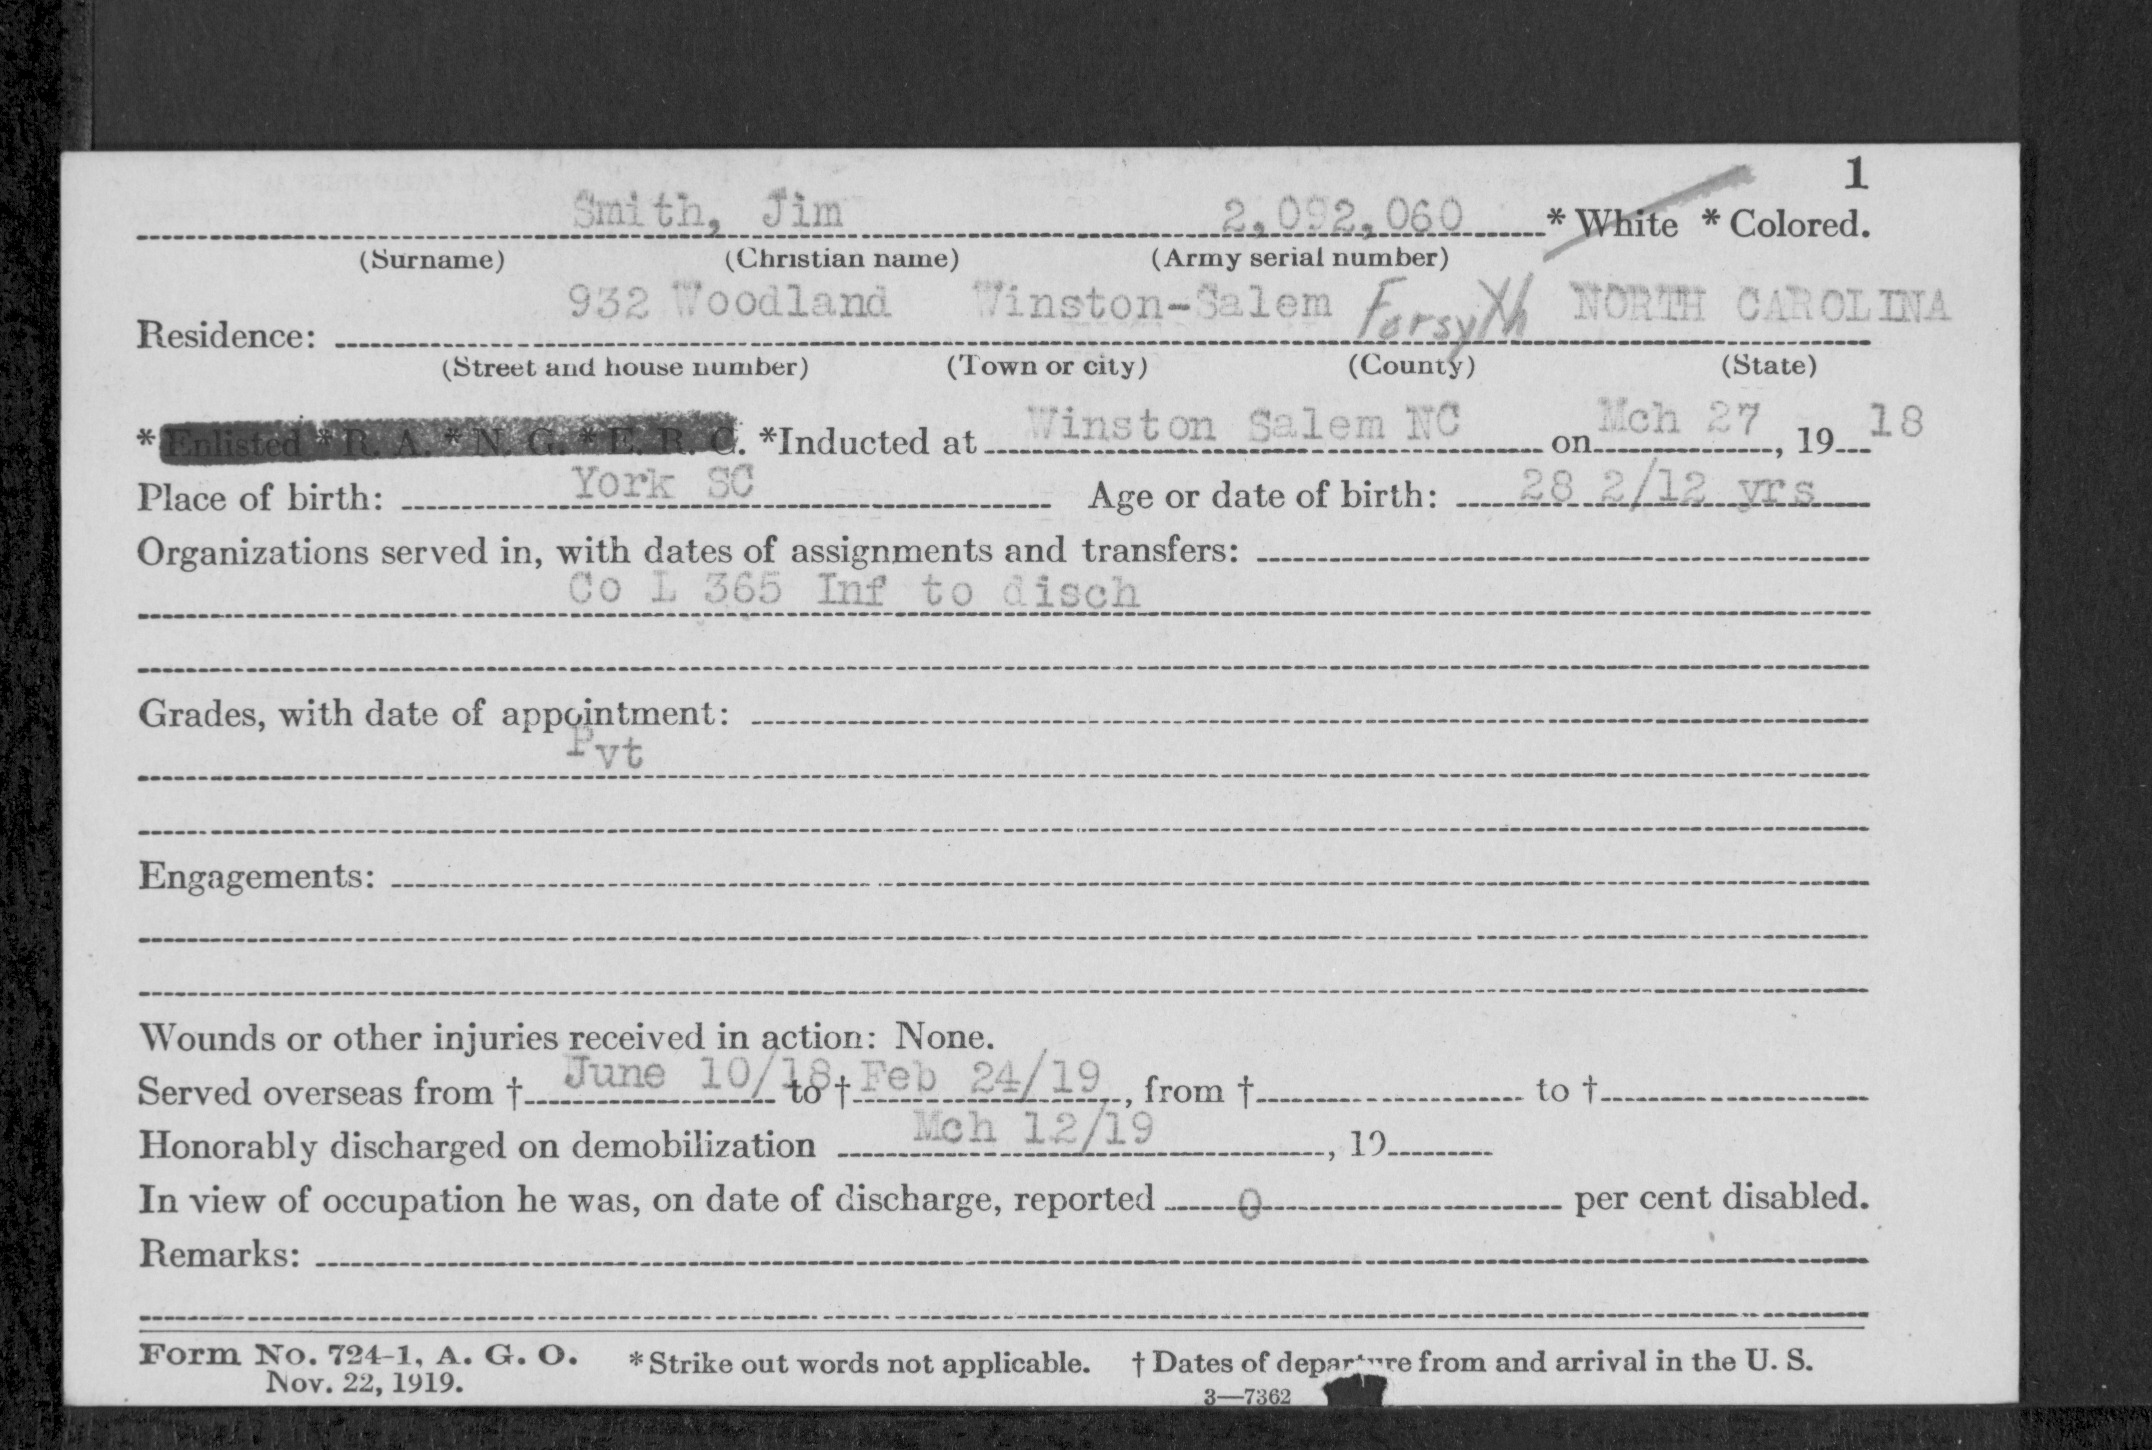 1
Smith, Jim 2,092,060 * White * Colored.
(Surname) (Christian name) (Army serial number)
932 Woodland Winston-Salem Forsyth NORTH CAROLINA
Residence:
(Street and house number) (Town or city) (County) (State)
* Enlisted * R. A. * N. G. * E. R. C. *Inducted at Winston Salem NC on Mch 27, 1918
Place of birth: York SC Age or date of birth: 28 2/12 yrs
Organizations served in, with dates of assignments and transfers:
Co L 365 Inf to disch
Grades, with date of appointment:
Pvt
Engagements:
Wounds or other injuries received in action: None.
Served overseas from † June 10/18 to † Feb 24/19, from † to †
Honorably discharged on demobilization Mch 12/19, 19
In view of occupation he was, on date of discharge, reported 0 per cent disabled.
Remarks:
Form No. 724-1, A. G. O. * Strike out words not applicable. † Dates of departure from and arrival in the U. S.
Nov. 22, 1919.
3—7362